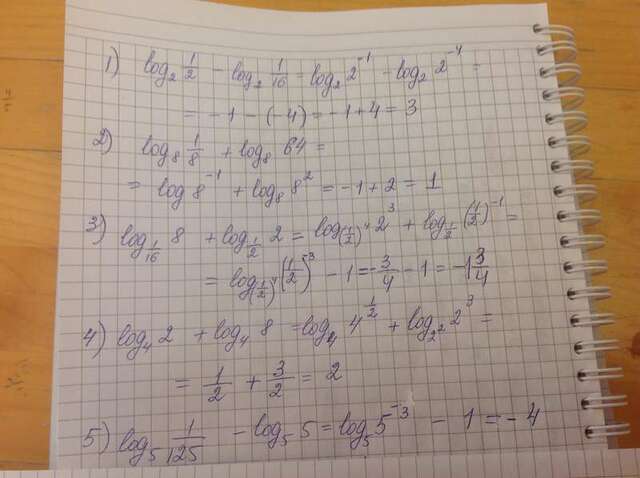 1) log₂ 1/2 - log₂ 1/16 = log₂ 2⁻¹ - log₂ 2⁻⁴ =
= -1 - (-4) = -1 + 4 = 3
2) log₈ 1/8 + log₈ 64 =
= log 8⁻¹ + log₈ 8² = -1 + 2 = 1
3) log_(1/16) 8 + log_(1/2) 2 = log_((1/2)⁴) 2³ + log_(1/2) (1/2)⁻¹ =
= log_((1/2)⁴) (1/2)⁻³ - 1 = -3/4 - 1 = -1 3/4
4) log₄ 2 + log₄ 8 = log₄ 4^(1/2) + log_(2²) 2³ =
= 1/2 + 3/2 = 2
5) log₅ 1/125 - log₅ 5 = log₅ 5⁻³ - 1 = -4